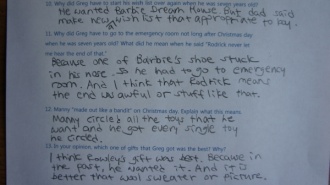 10. Why did Greg have to start his wish list over again when he was seven years old?
He wanted Barbie Dream House. But dad said
make new wish list that appropriate to boy.
11. Why did Greg have to go to the emergency room not long after Christmas day
when he was seven years old? What did he mean when he said "Rodrick never let
me hear the end of that."
Because one of Barbie's shoe stuck
in his nose. So he had to go to emergency
room. And I think that Rodrick means
the end us awful or stuff like that.
12. Manny "made out like a bandit" on Christmas day. Explain what this means.
Manny circle's all the toys that he
want and he got every single toy
he circled.
13. In your opinion, which one of gifts that Greg got was the best? Why?
I think Rowley's gift was best. Because in
the past, he wanted it. And it is
better that wool sweater or picture.